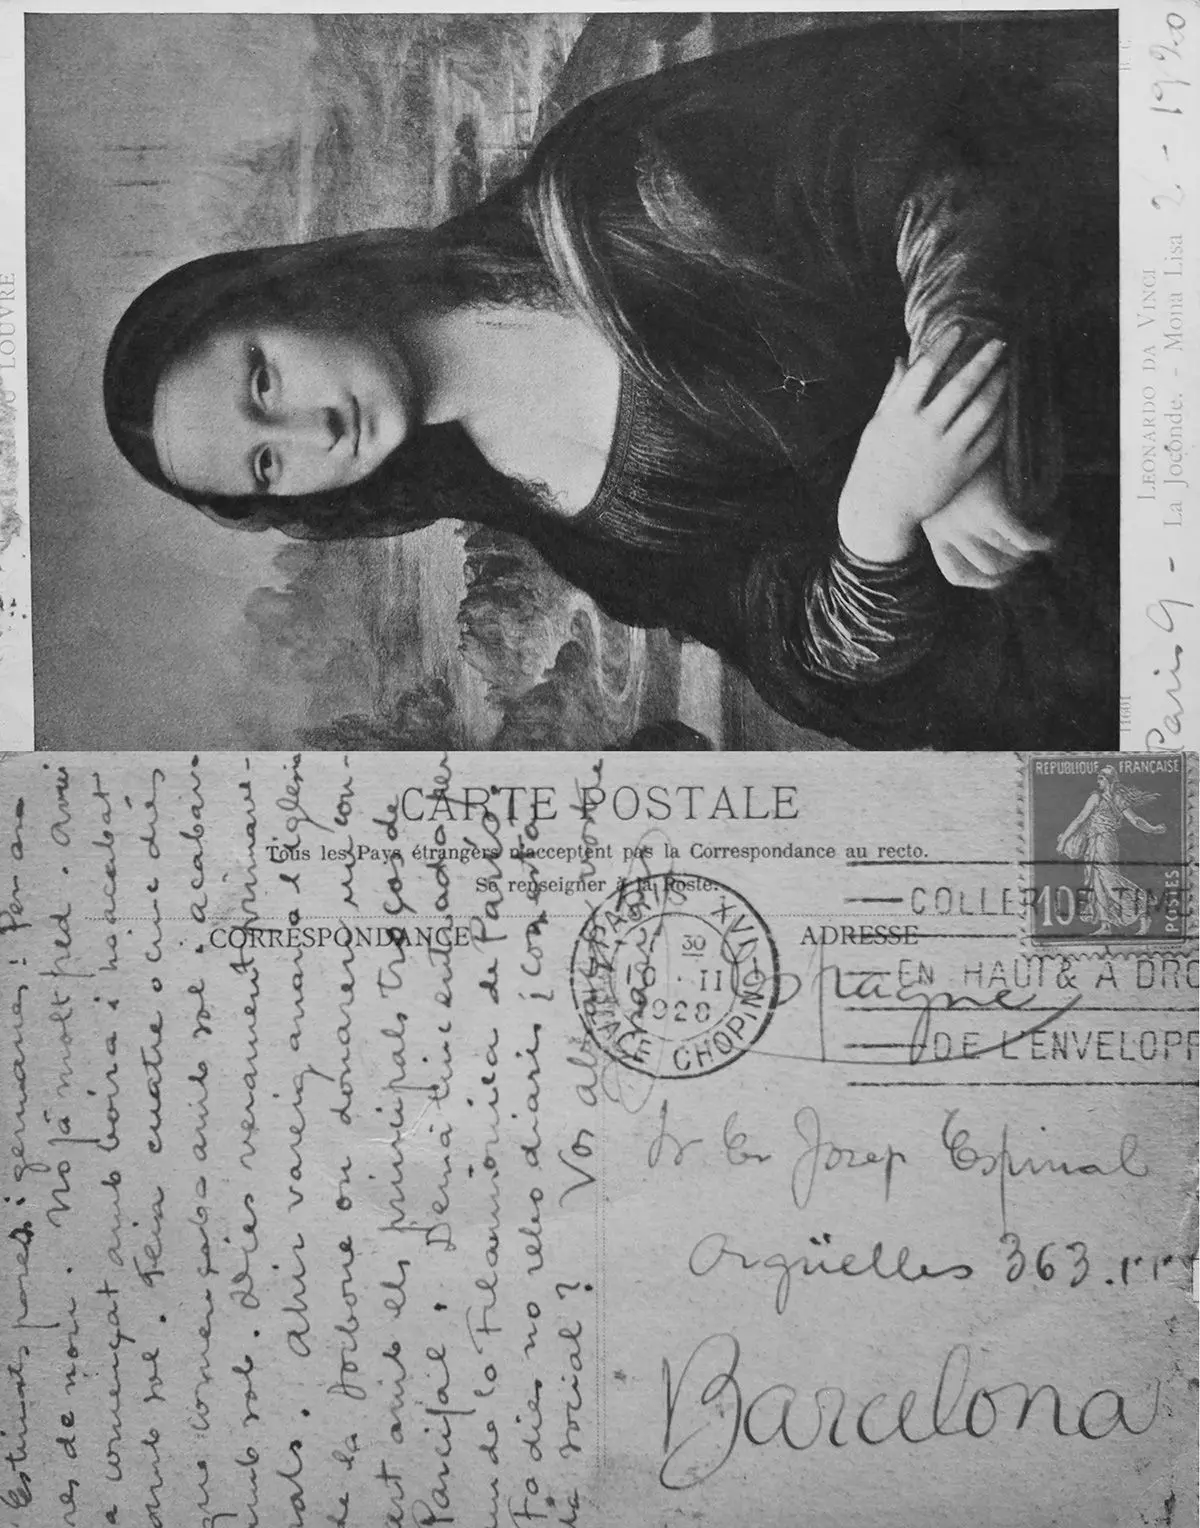 LOUVRE
LEONARDO DA VINCI
La Joconde. - Mona Lisa
11601
Paris 9 - 2 - 1920
CARTE POSTALE
Tous les Pays étrangers n'acceptent pas la Correspondance au recto.
Se renseigner à la Poste.
CORRESPONDANCE
ADRESSE
REPUBLIQUE FRANÇAISE
10
POSTES
PARIS XVI
30
II
1920
CHOPIN
COLLER LE TIM
EN HAUT & A DRO
DE L'ENVELOPP
Espagne
Sr En Josep Espinal
Argüelles 363.
Barcelona
Estimats pares i germanes: Pensava
res de nou. No fá molt fred. Avui
a començat amb boira i ha acabat
amb sol. Feia cuatre o cinc dies
que començaba amb sol i acabava
amb sol. Dies verament primave-
rals. Ahir vareig anar a l'iglesia
de la Sorbone on donaren un con-
cert amb els principals troços de
Parcifal. Demá tinc entrada per
un de la Filarmónica de París.
Fa dies no rebo diaris ¿com está
la social? Vos abraça